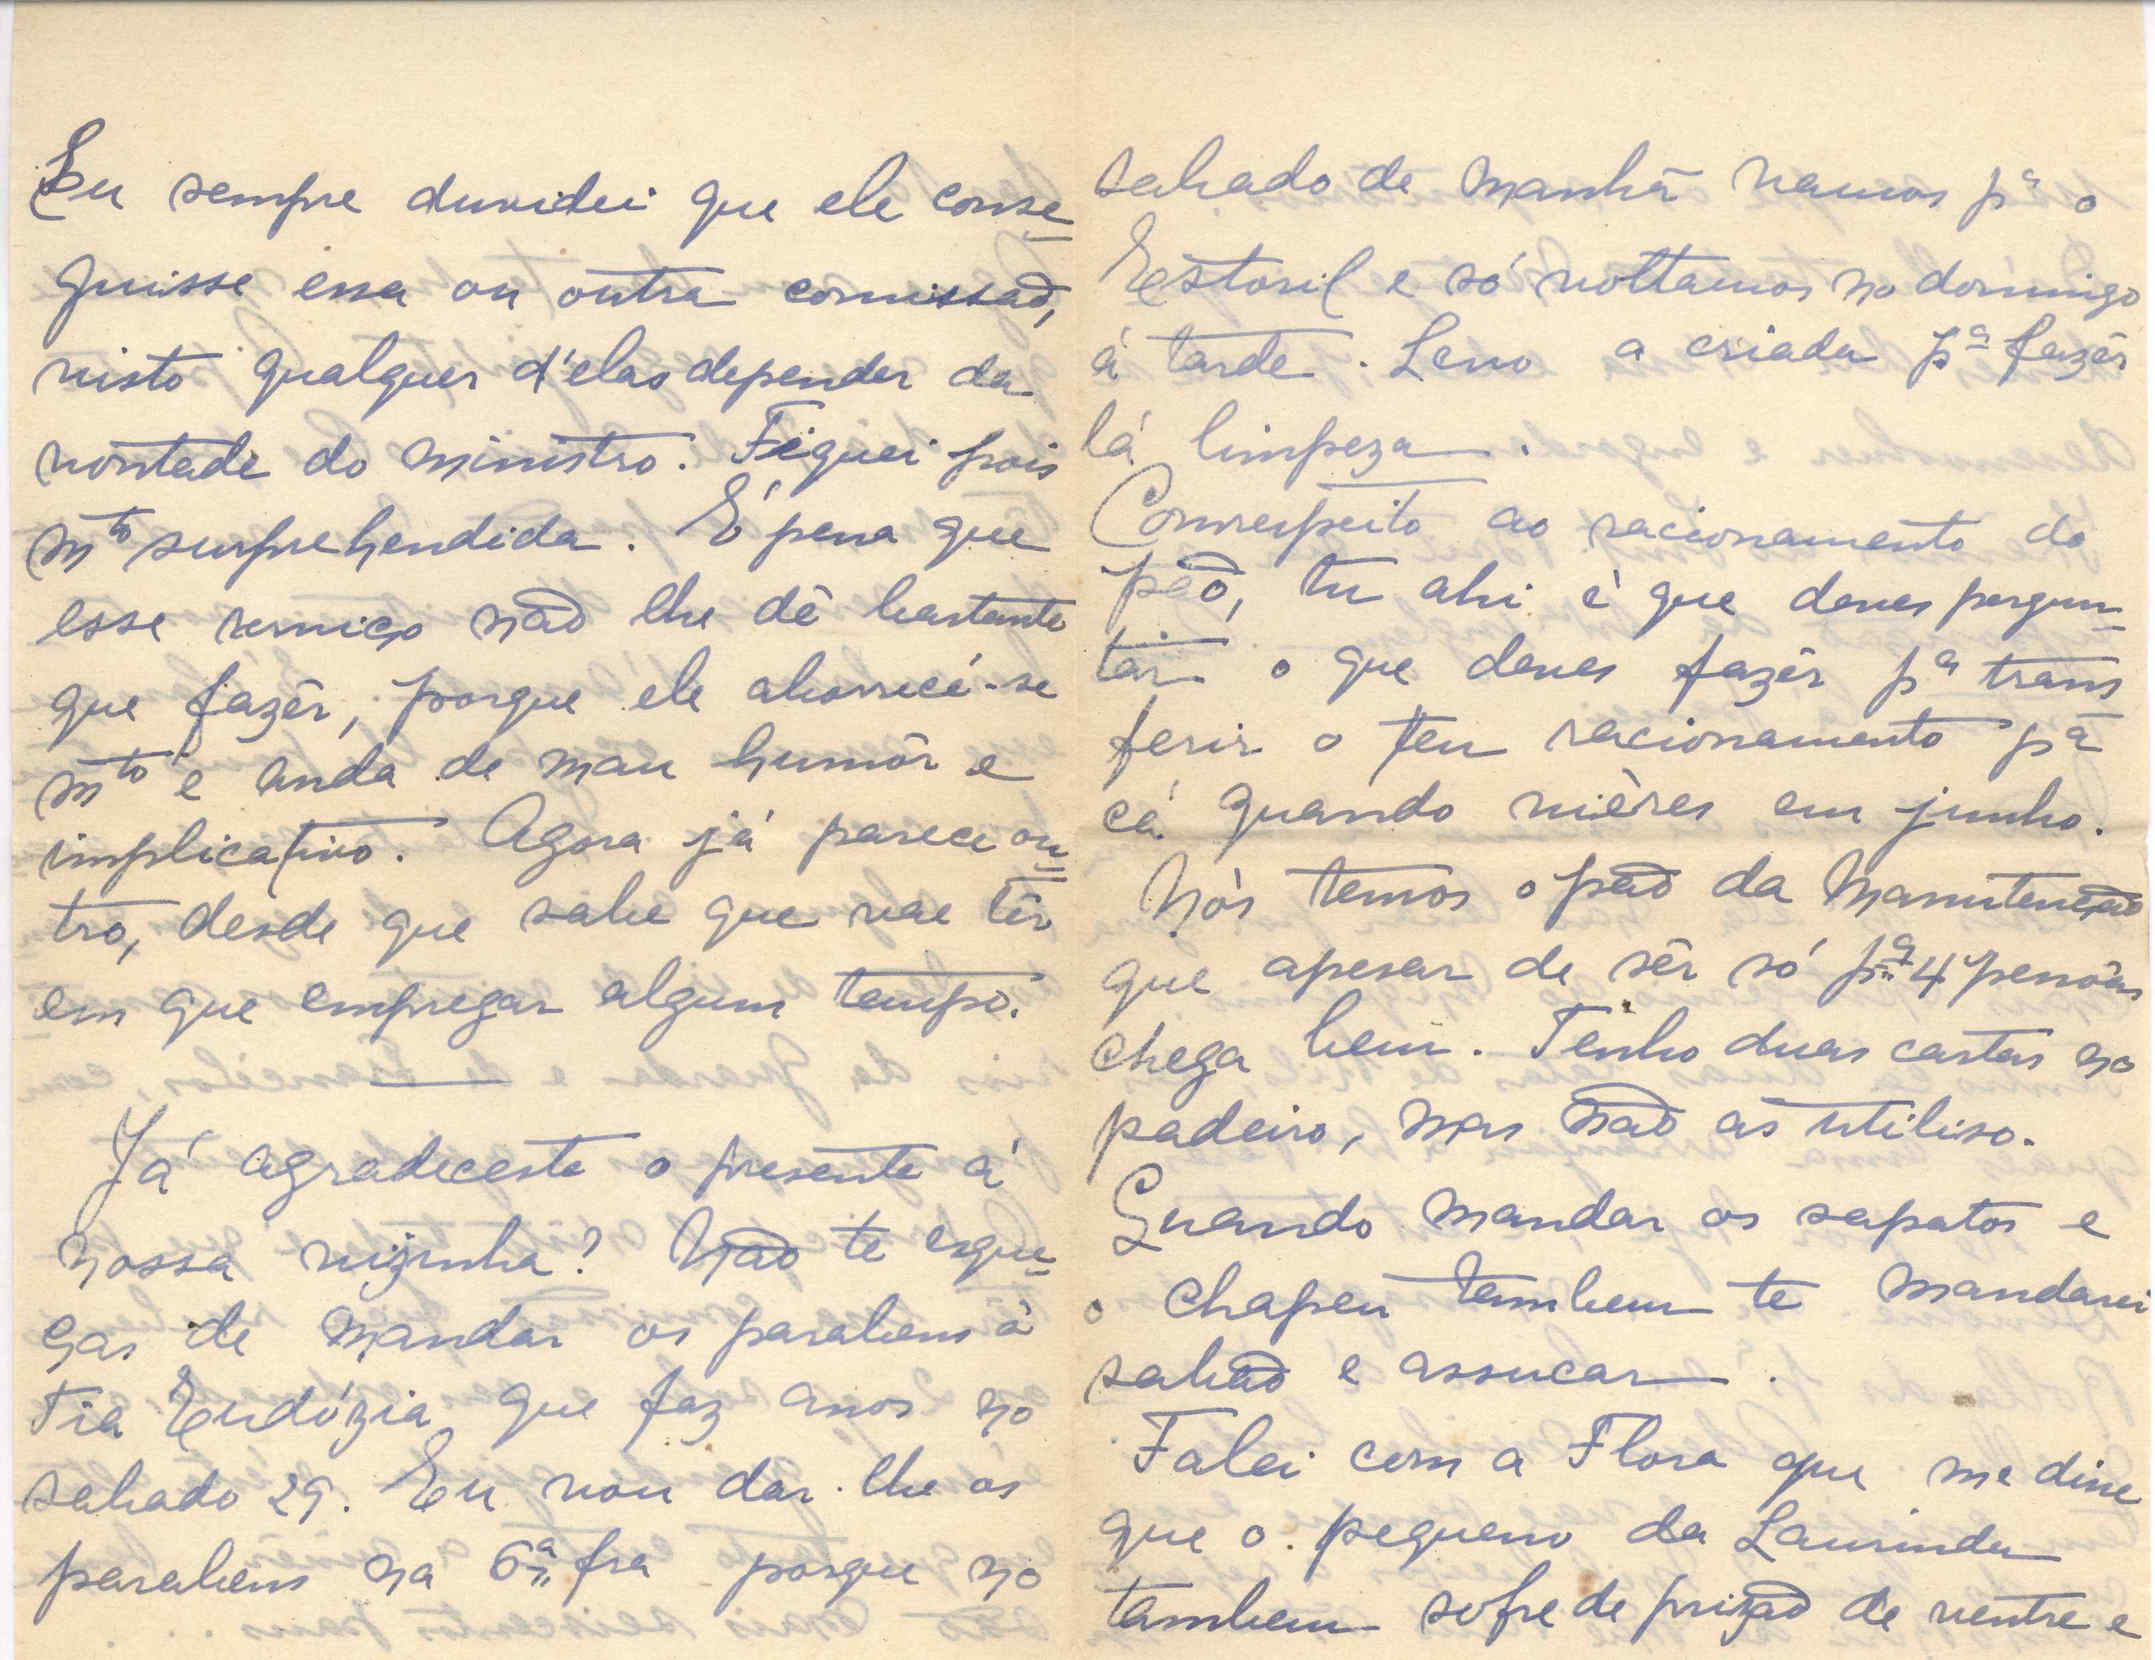 Eu sempre duvidei que ele conse=
guisse essa ou outra comissão,
visto qualquer d'elas depender da
vontade do ministro. Fiquei pois
mto surprehendida. É pena que
esse serviço não lhe dê bastante
que fazêr, porque ele aborrecê-se
mto e anda de mau humôr e
implicativo. Agora já parece ou=
tro, desde que sabe que vae têr
em que empregar algum tempo.
Já agradeceste o presente á
nossa vizinha? Não te esque=
ças de mandar os parabens à
Tia Eudózia que faz anos no
sabado 29. Eu vou dar-lhe os
parabens na 6ª fra porque no
sabado de manhã vamos pª o
Estoril e só voltamos no domingo
á tarde. Levo a criada pª fazêr
lá limpeza.
Comrespeito ao racionamento do
pão, tu ahi é que deves pergun=
tar o que deves fazêr pª trans
ferir o teu racionamento pª
cá quando viéres em junho.
Nós temos o pão da Manutenção
que apesar de sêr só pª 4 pessôas
chega bem. Tenho duas cartas no
padeiro, mas não as utiliso.
Quando mandar os sapatos e
o chapeu tambem te mandarei
sabão e assucar.
Falei com a Flora que me disse
que o pequeno da Laurinda
tambem sofre de prizão de ventre e